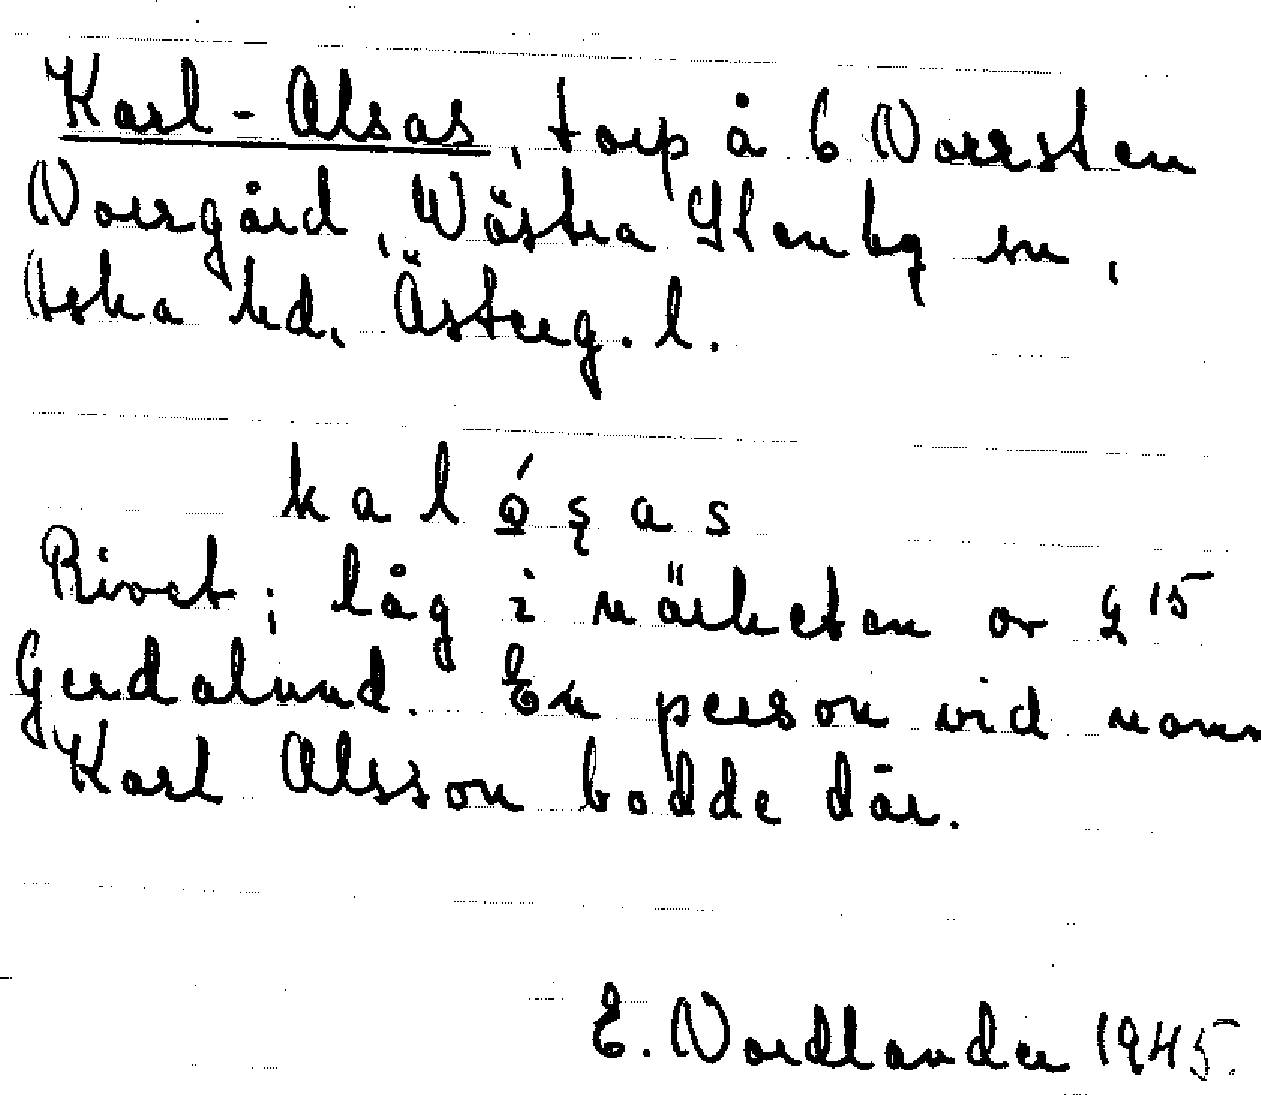 Karl-Olsas, torp å 6 Norrsten
Norrgård, Västra Stenby sn,
Aska hd. Österg. l.
kalǫ́ʂas
Rivet; låg i närheten av § 15
Gerdalund. En person vid namn
Karl Olsson bodde där.
E. Nordlander 1945.